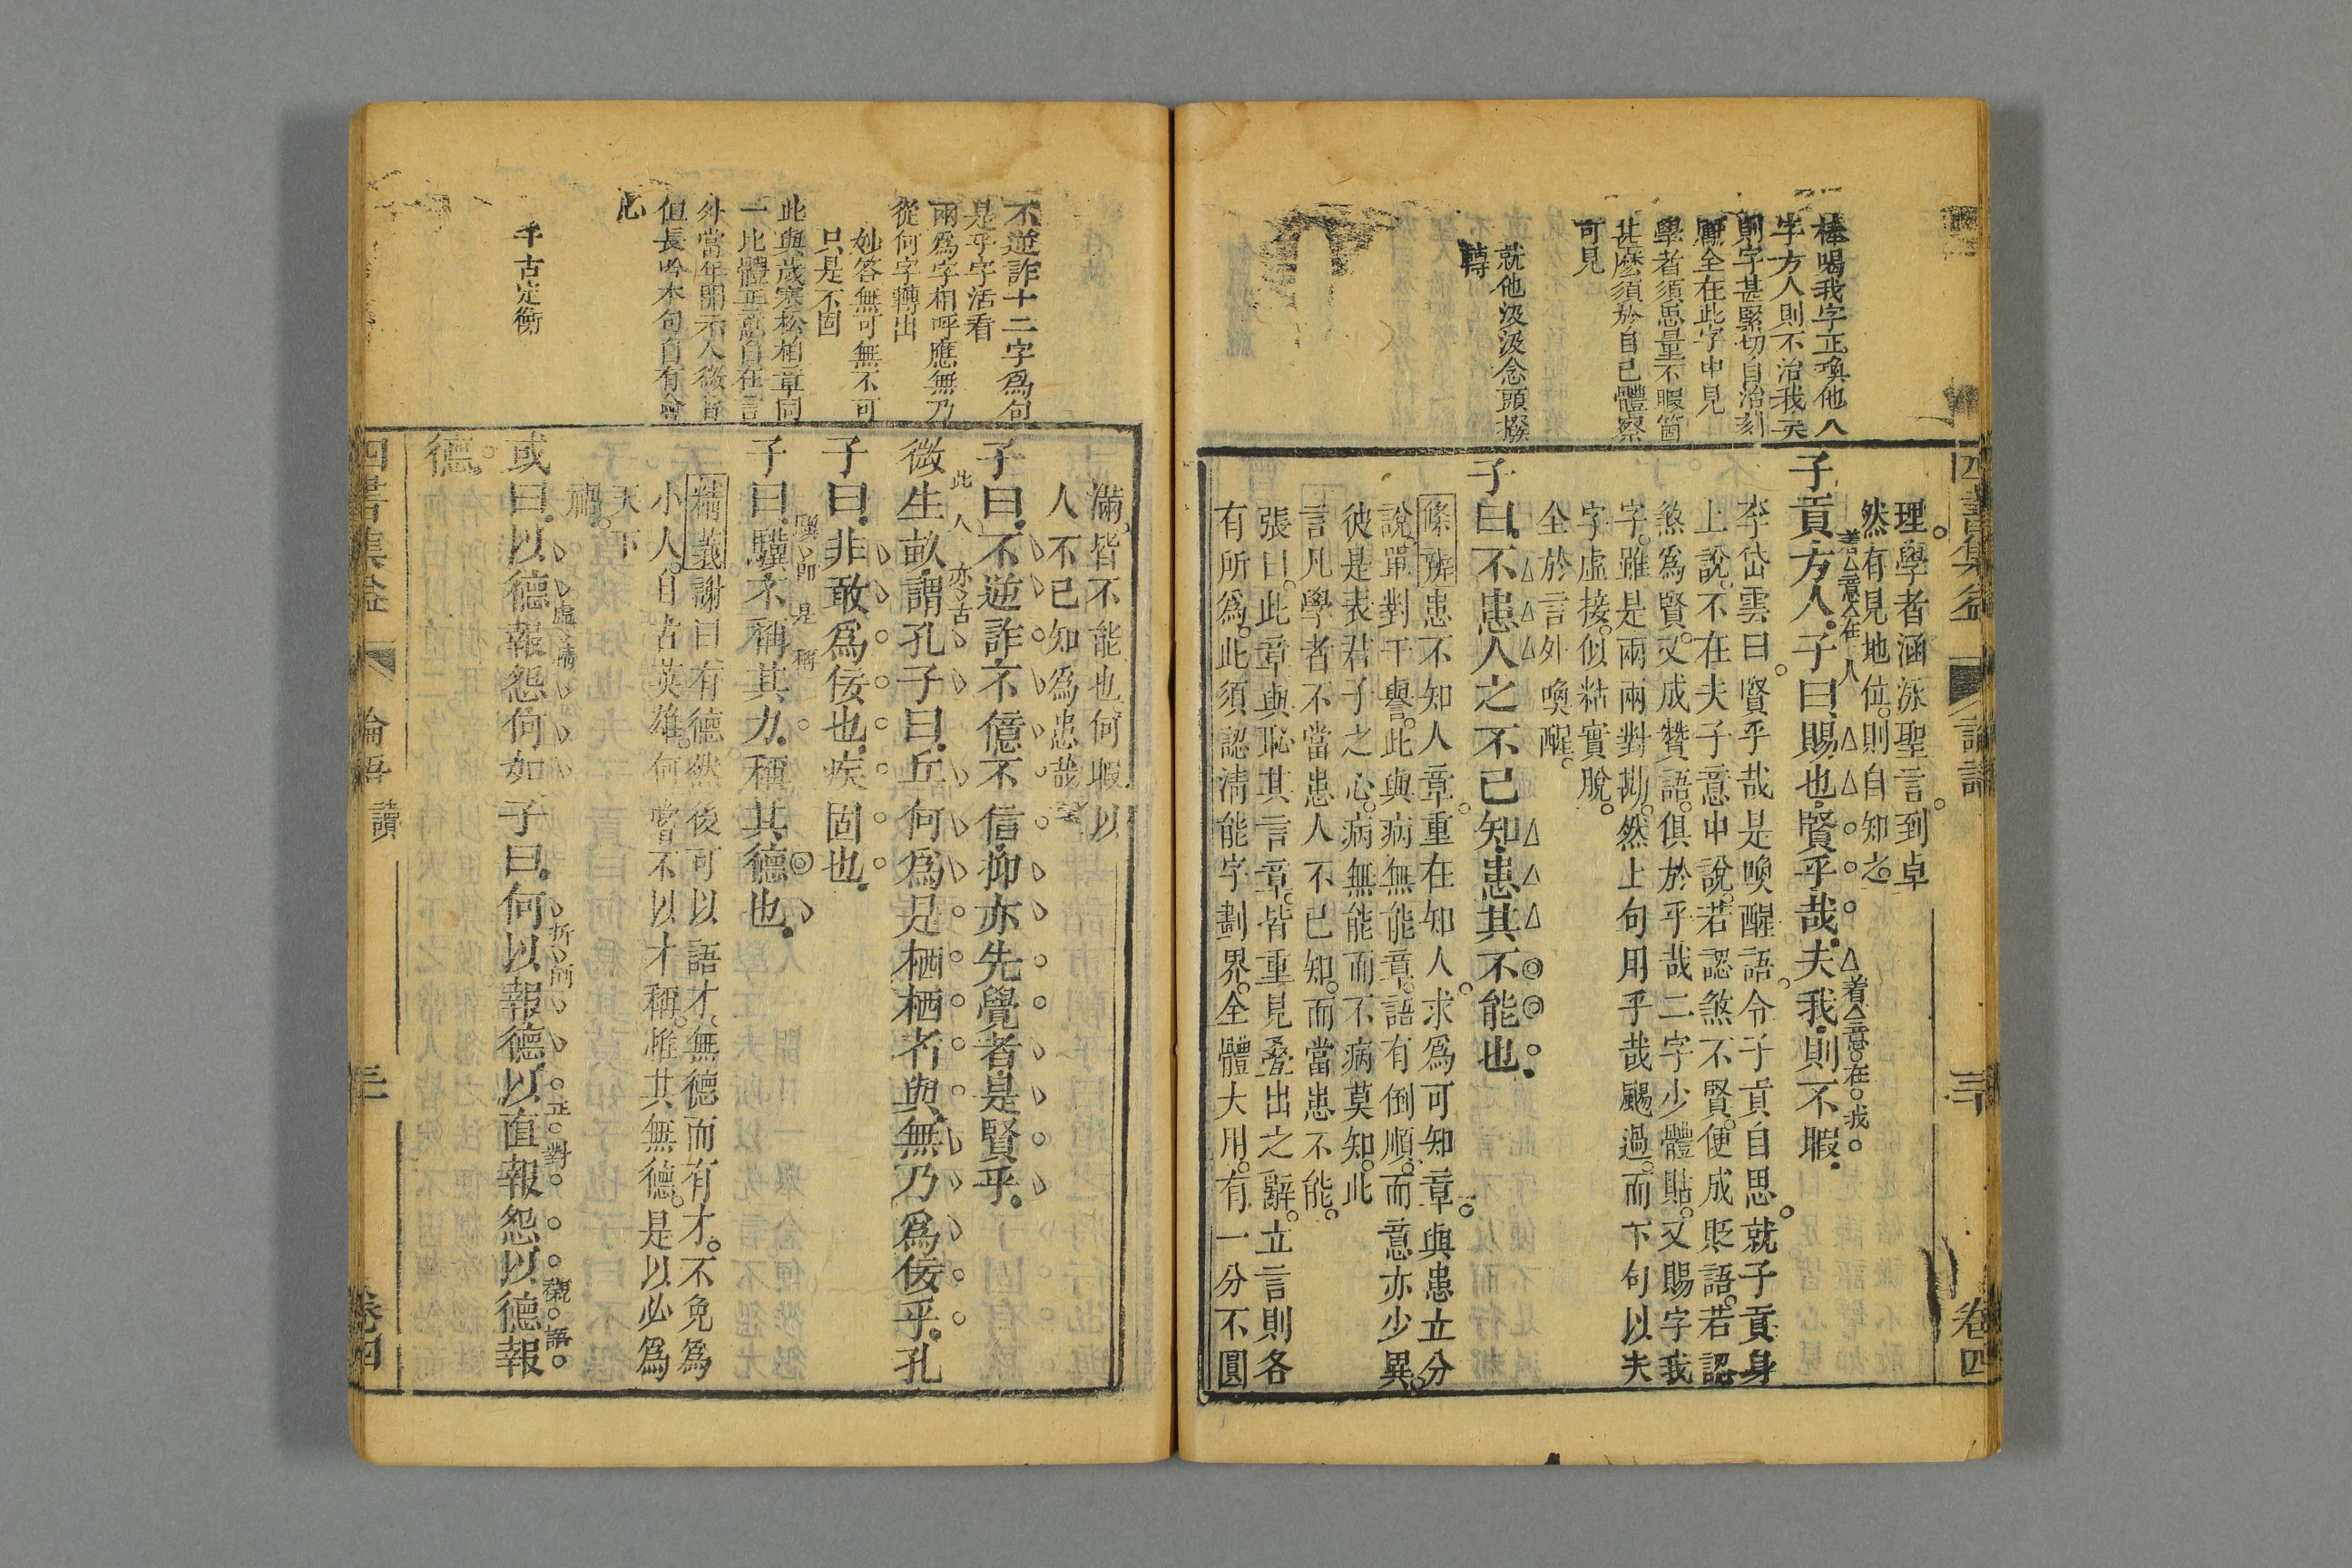 棒喝我字正喚他八
字方人則不治我矣
則字甚緊切自治刻
厭全在此字中見
學者須思量不暇箇
甚麼須於自己體察
可見
就他汲汲念頭撥
轉
理。學者涵泳聖言。到卓
然有見地位。則自知之。
子貢方人。子曰。賜也賢乎哉。夫我則不暇。
著意在人
著意在我
李岱雲曰。賢乎哉是喚醒語。令子貢自思。就子貢身
上說。不在夫子意中說。若認煞不賢。便成貶語。若認
煞為賢。又成贊語。俱於乎哉二字少體貼。又賜字我
字。雖是兩兩對勘。然上句用乎哉颺過。而下句以夫
字虛接。似粘實脫。
全於言外喚醒。
子曰。不患人之不己知。患其不能也。
條辨患不知人章。重在知人。求為可知章。與患立分
說。單對干譽。此與病無能章。語有倒順。而意亦少異。
彼是表君子之心。病無能而不病莫知。此
言凡學者不當患人不己知。而當患不能。
張曰。此章與恥其言章。皆重見叠出之辭。立言則各
有所為。此須認清能字劃界。全體大用。有一分不圓
四書集益
論語
三十
卷四
不逆詐十二字為句
是乎字活看
兩為字相呼應無乃
從何字轉出
妙答無可無不可
只是不固
此與歲寒松柏章同
一比體正意自在言
外當年開示人微旨
但長吟本句自有會
心
千古定衡
滿。皆不能也。何暇以
人不己知為患哉
子曰。不逆詐。不億不信。抑亦先覺者。是賢乎。
微生畝謂孔子曰。丘何為是栖栖者與。無乃為佞乎。孔
此人亦古
子曰。非敢為佞也。疾固也。
子曰。驥不稱其力。稱其德也。
驥即是稱
精義謝曰。有德然後可以語才。無德而有才。不免為
小人。自古英雄。何嘗不以才稱。惟其無德。是以必為
天下
禍。
或曰。以德報怨何如。子曰。何以報德。以直報怨。以德報
虛
正對
襯語
德。
四書集益
論語
讀
三十
卷四